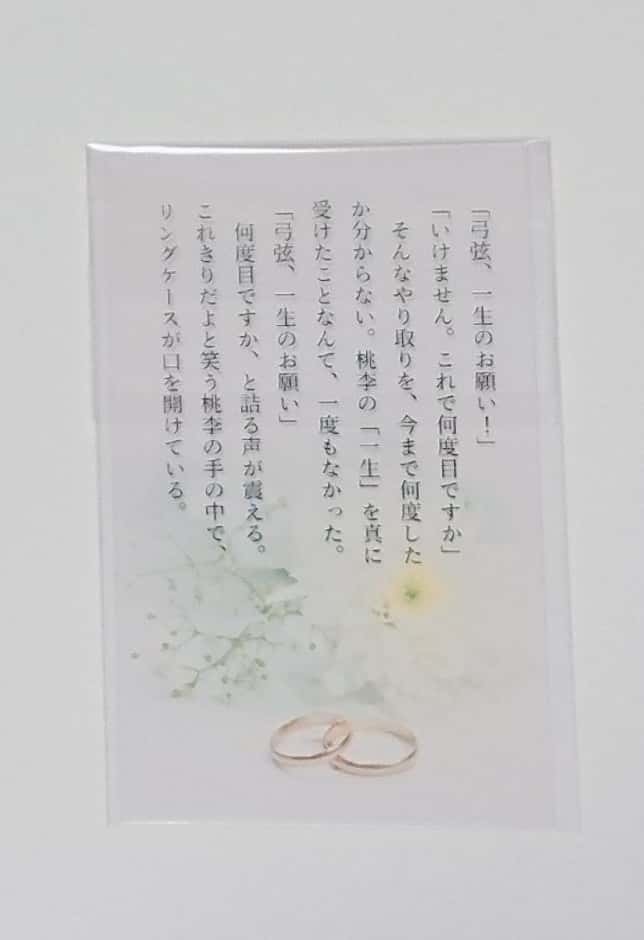 「弓弦、一生のお願い！」
「いけません。これで何度目ですか」
　そんなやり取りを、今まで何度した
か分からない。桃李の「一生」を真に
受けたことなんて、一度もなかった。
「弓弦、一生のお願い」
　何度目ですか、と詰る声が震える。
これきりだよと笑う桃李の手の中で、
リングケースが口を開けている。